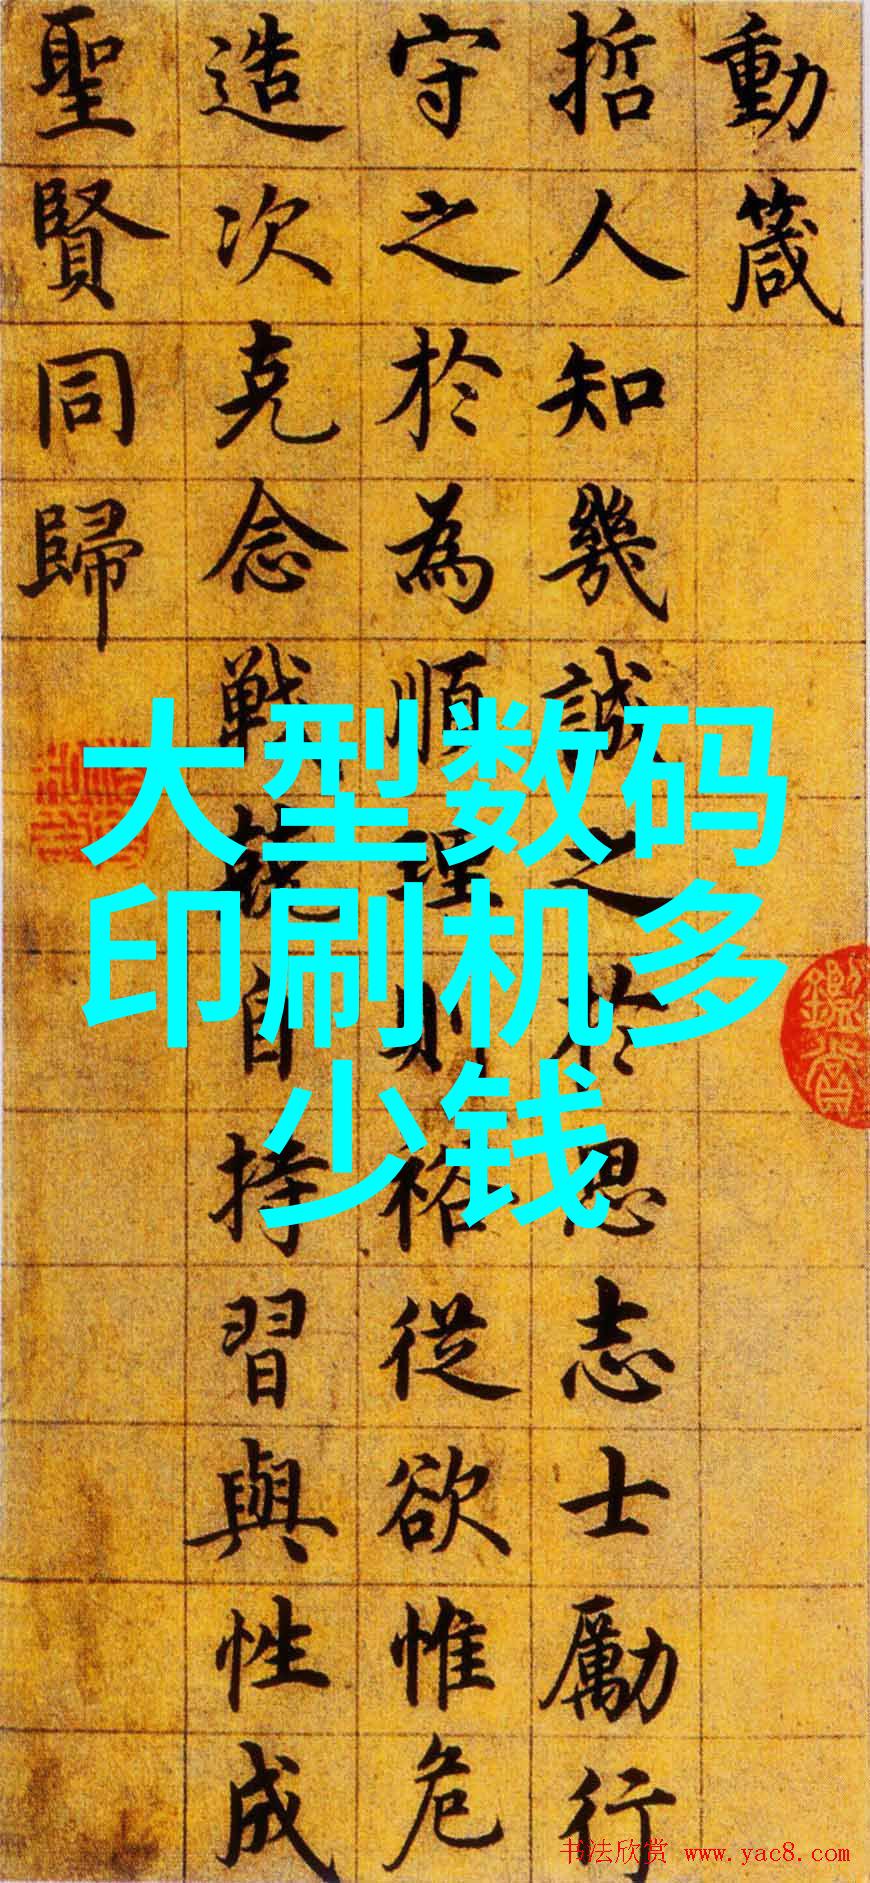 動箴
哲人知幾誠之於思志士勵行
守之於為順理則裕從欲惟危
造次克念戰兢自持習與性成
聖賢同歸
大型数码
印刷机多
少钱
书法欣赏 www.yac8.com